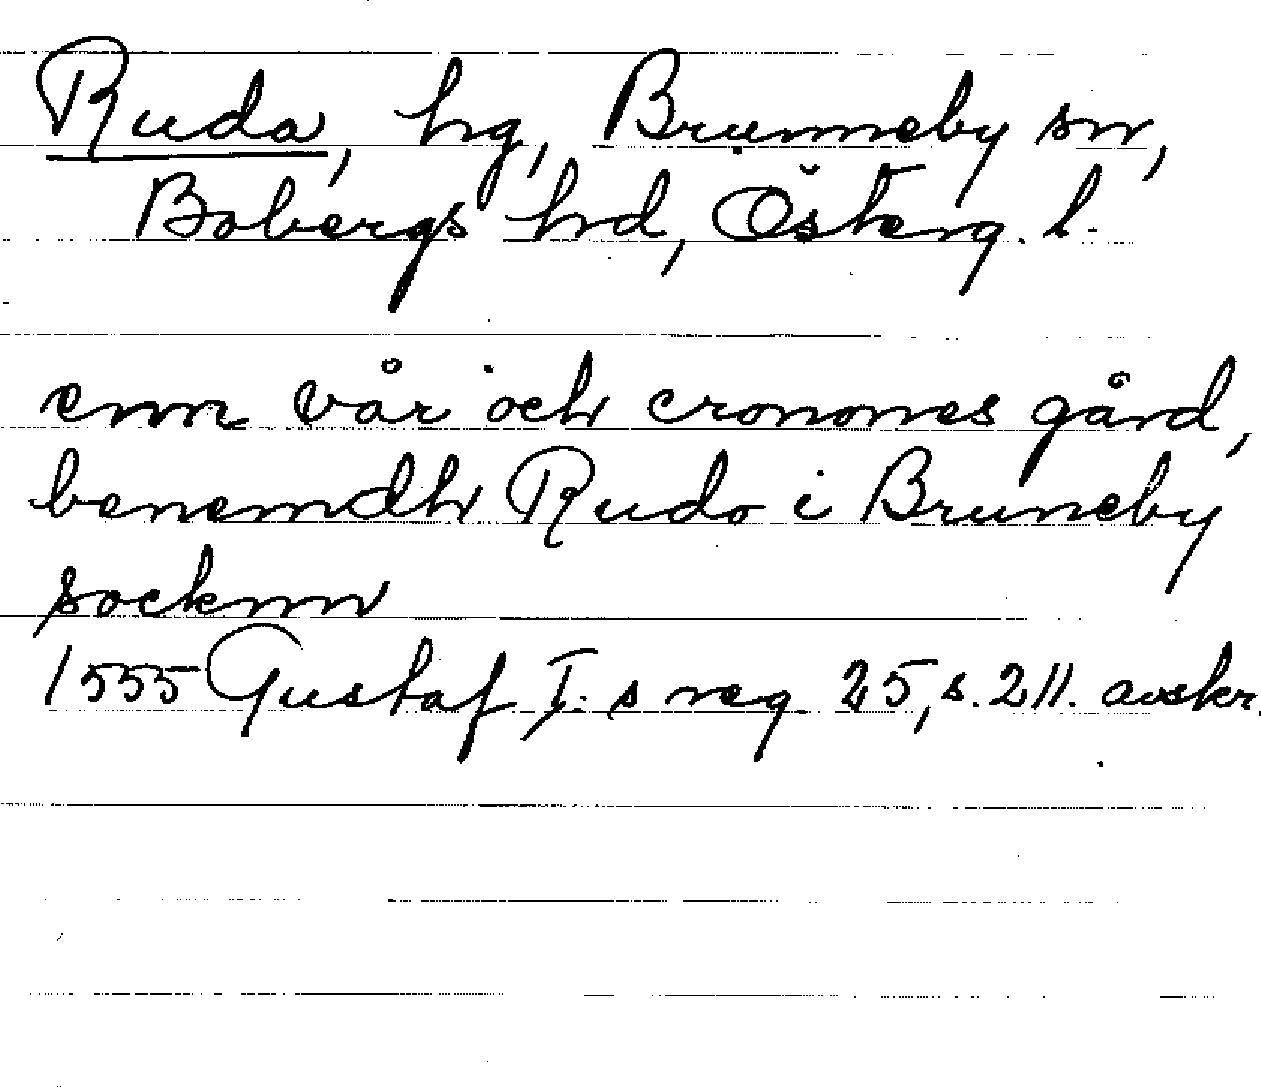 Ruda, hg, Brunneby sn,
Bobergs hrd, Österg. l.
enn vår och cronones gård,
benemdh Rudo i Bruneby
socknn
1555 Gustaf I:s reg. 25, s. 211. avskr.